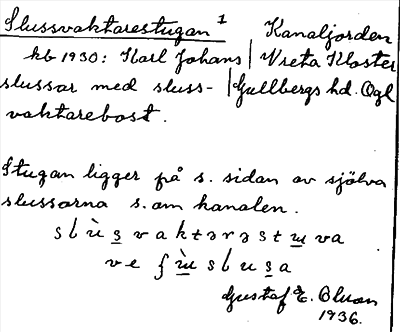 Slussvaktarestugan 1 Kanaljorden
kb 1930: Karl Johans | Vreta Kloster
slussar med sluss- | Gullbergs hd. Ögl
vaktarebost.
Stugan ligger på s. sidan av själva
slussarna s.om kanalen.
slùs̲vaktərəstɯ̲va
ve ʃɯ̲̀slus̲a
Gustaf E. Olsson
1936.